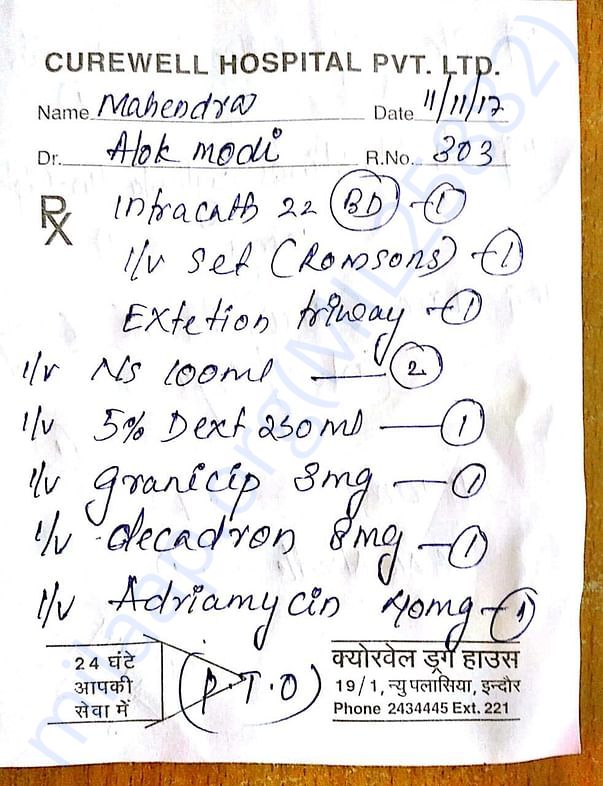 CUREWELL HOSPITAL PVT. LTD.
Name Mahendra Date 11/11/17
Dr. Alok modi R.No. 303
Rx Intracath 22 (BD) - 1
I/v set (Romsons) - 1
Extetion triway - 1
I/v NS 100ml — 2
I/v 5% Dext 250ml — 1
I/v granicip 3mg — 1
I/v decadron 8mg - 1
I/v Adriamycin 40mg - 1
(P.T.O)
24 घंटे
आपकी
सेवा में
क्योरवेल ड्रग हाउस
19/1, न्यु पलासिया, इन्दौर
Phone 2434445 Ext. 221